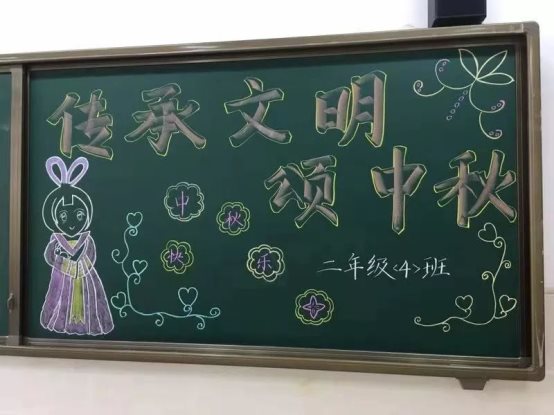 传承文明
颂中秋
中秋
快乐
二年级<4>班